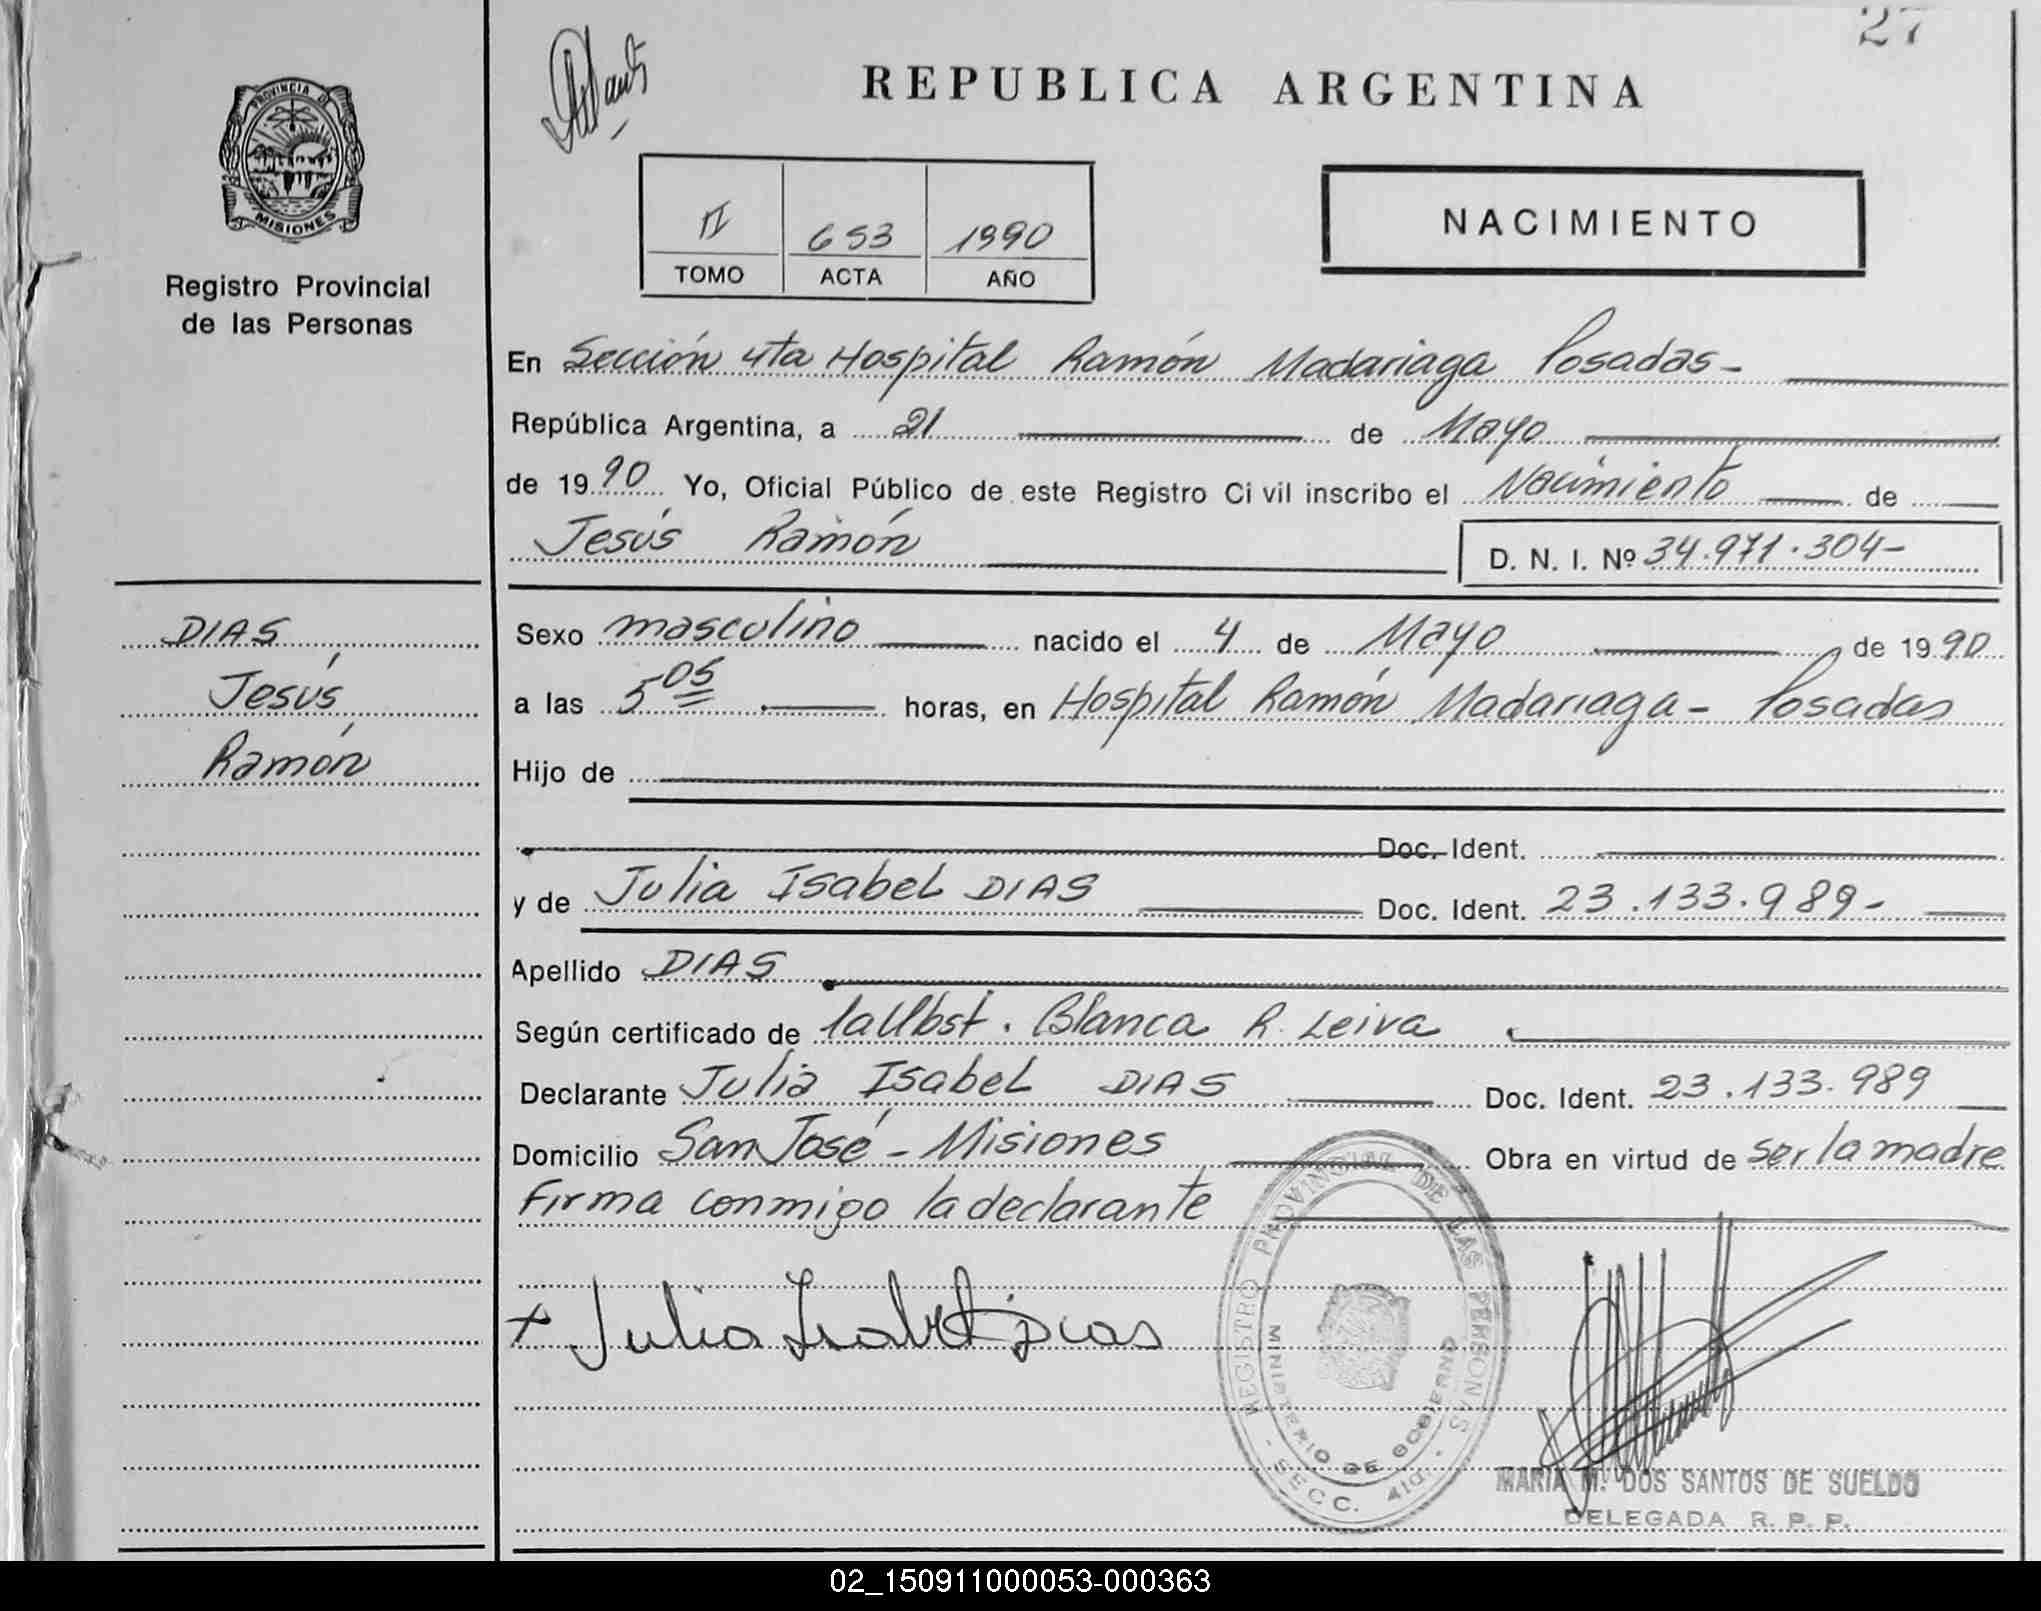 27
REPUBLICA ARGENTINA
PROVINCIA DE
MISIONES
Registro Provincial
de las Personas
II 653 1990
TOMO ACTA AÑO
NACIMIENTO
En Sección 4ta Hospital Ramón Madariaga Posadas-
República Argentina, a 21 de Mayo
de 1990 Yo, Oficial Público de este Registro Civil inscribo el Nacimiento de
Jesús Ramón D. N. I. Nº 34.971.304-
DIAS
Jesús
Ramón
Sexo masculino nacido el 4 de Mayo de 1990
a las 5 05 horas, en Hospital Ramón Madariaga - Posadas
Hijo de
Doc. Ident.
y de Julia Isabel DIAS Doc. Ident. 23.133.989-
Apellido DIAS
Según certificado de la Obst. Blanca R. Leiva
Declarante Julia Isabel DIAS Doc. Ident. 23.133.989
Domicilio San José - Misiones Obra en virtud de ser la madre
Firma conmigo la declarante
+ Julia Isabel Dias
REGISTRO PROVINCIAL DE LAS PERSONAS
MINISTERIO DE GOBIERNO
- SECC. 4ta. -
MARIA M. DOS SANTOS DE SUELDO
DELEGADA R. P. P.
02_150911000053-000363